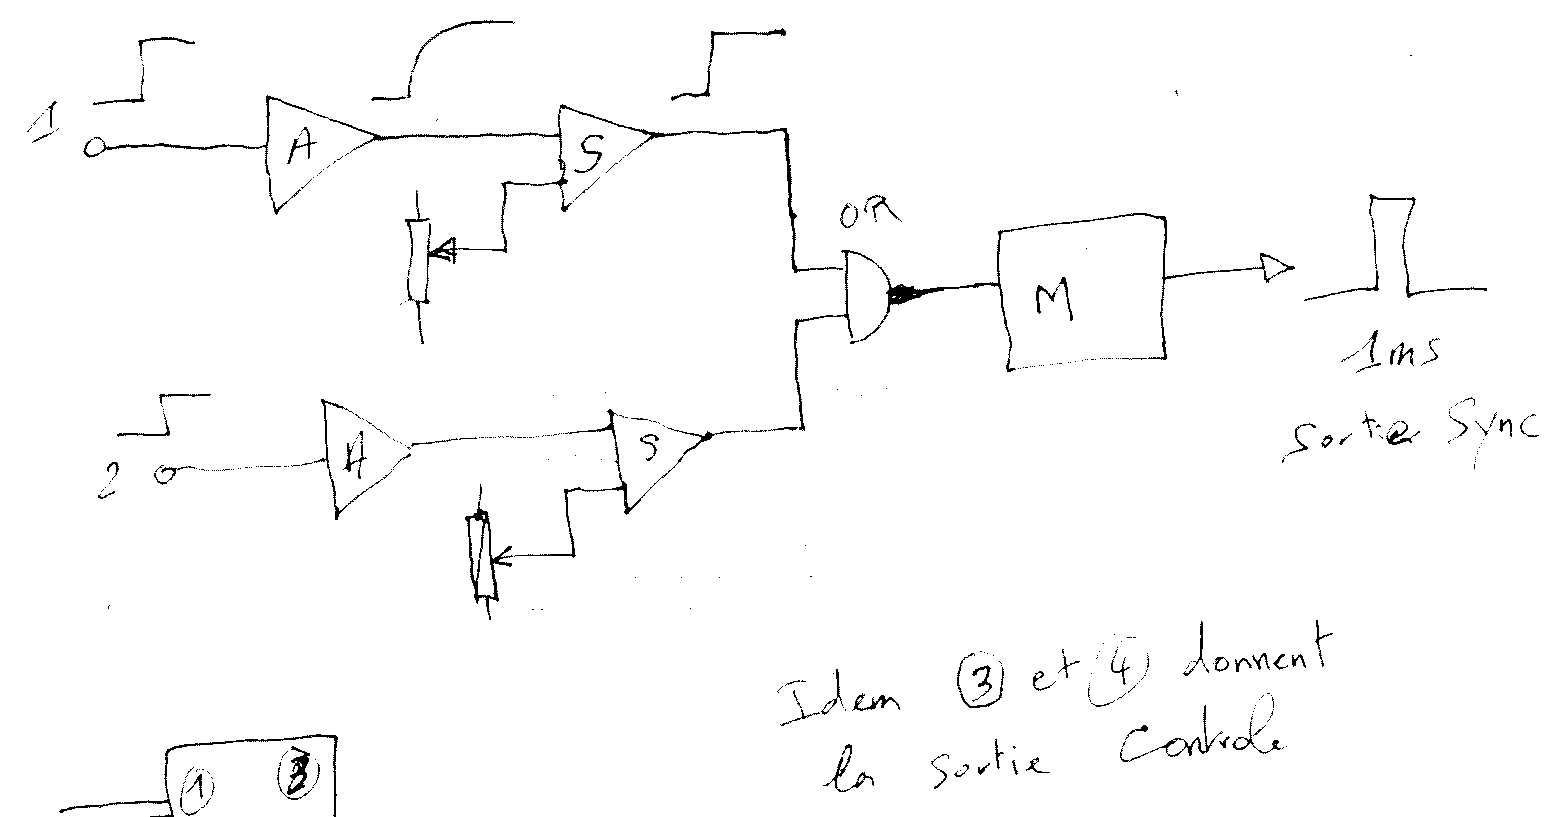 1
A
S
OR
M
1ms
Sortie Sync
2
A
S
Idem ③ et ④ donnent
la sortie Controle
① ③